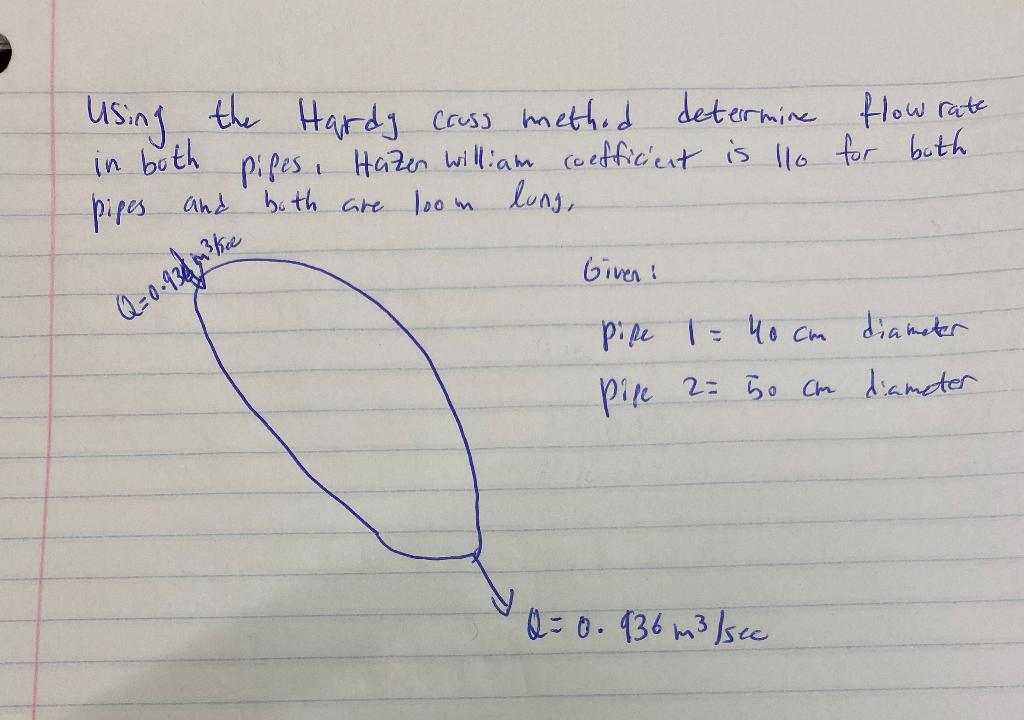 Using the Hardy cross method determine flow rate
in both pipes, Hazen william coefficient is 110 for both
pipes and both are 100 m long,
Q=0.936 m³/sec
Given:
pipe 1 = 40 cm diameter
pipe 2 = 50 cm diameter
Q= 0.936 m³/sec